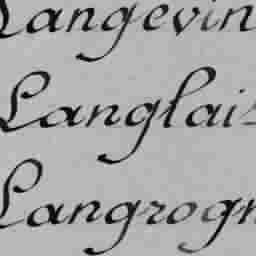 Langevin
Langlais
Langrogn